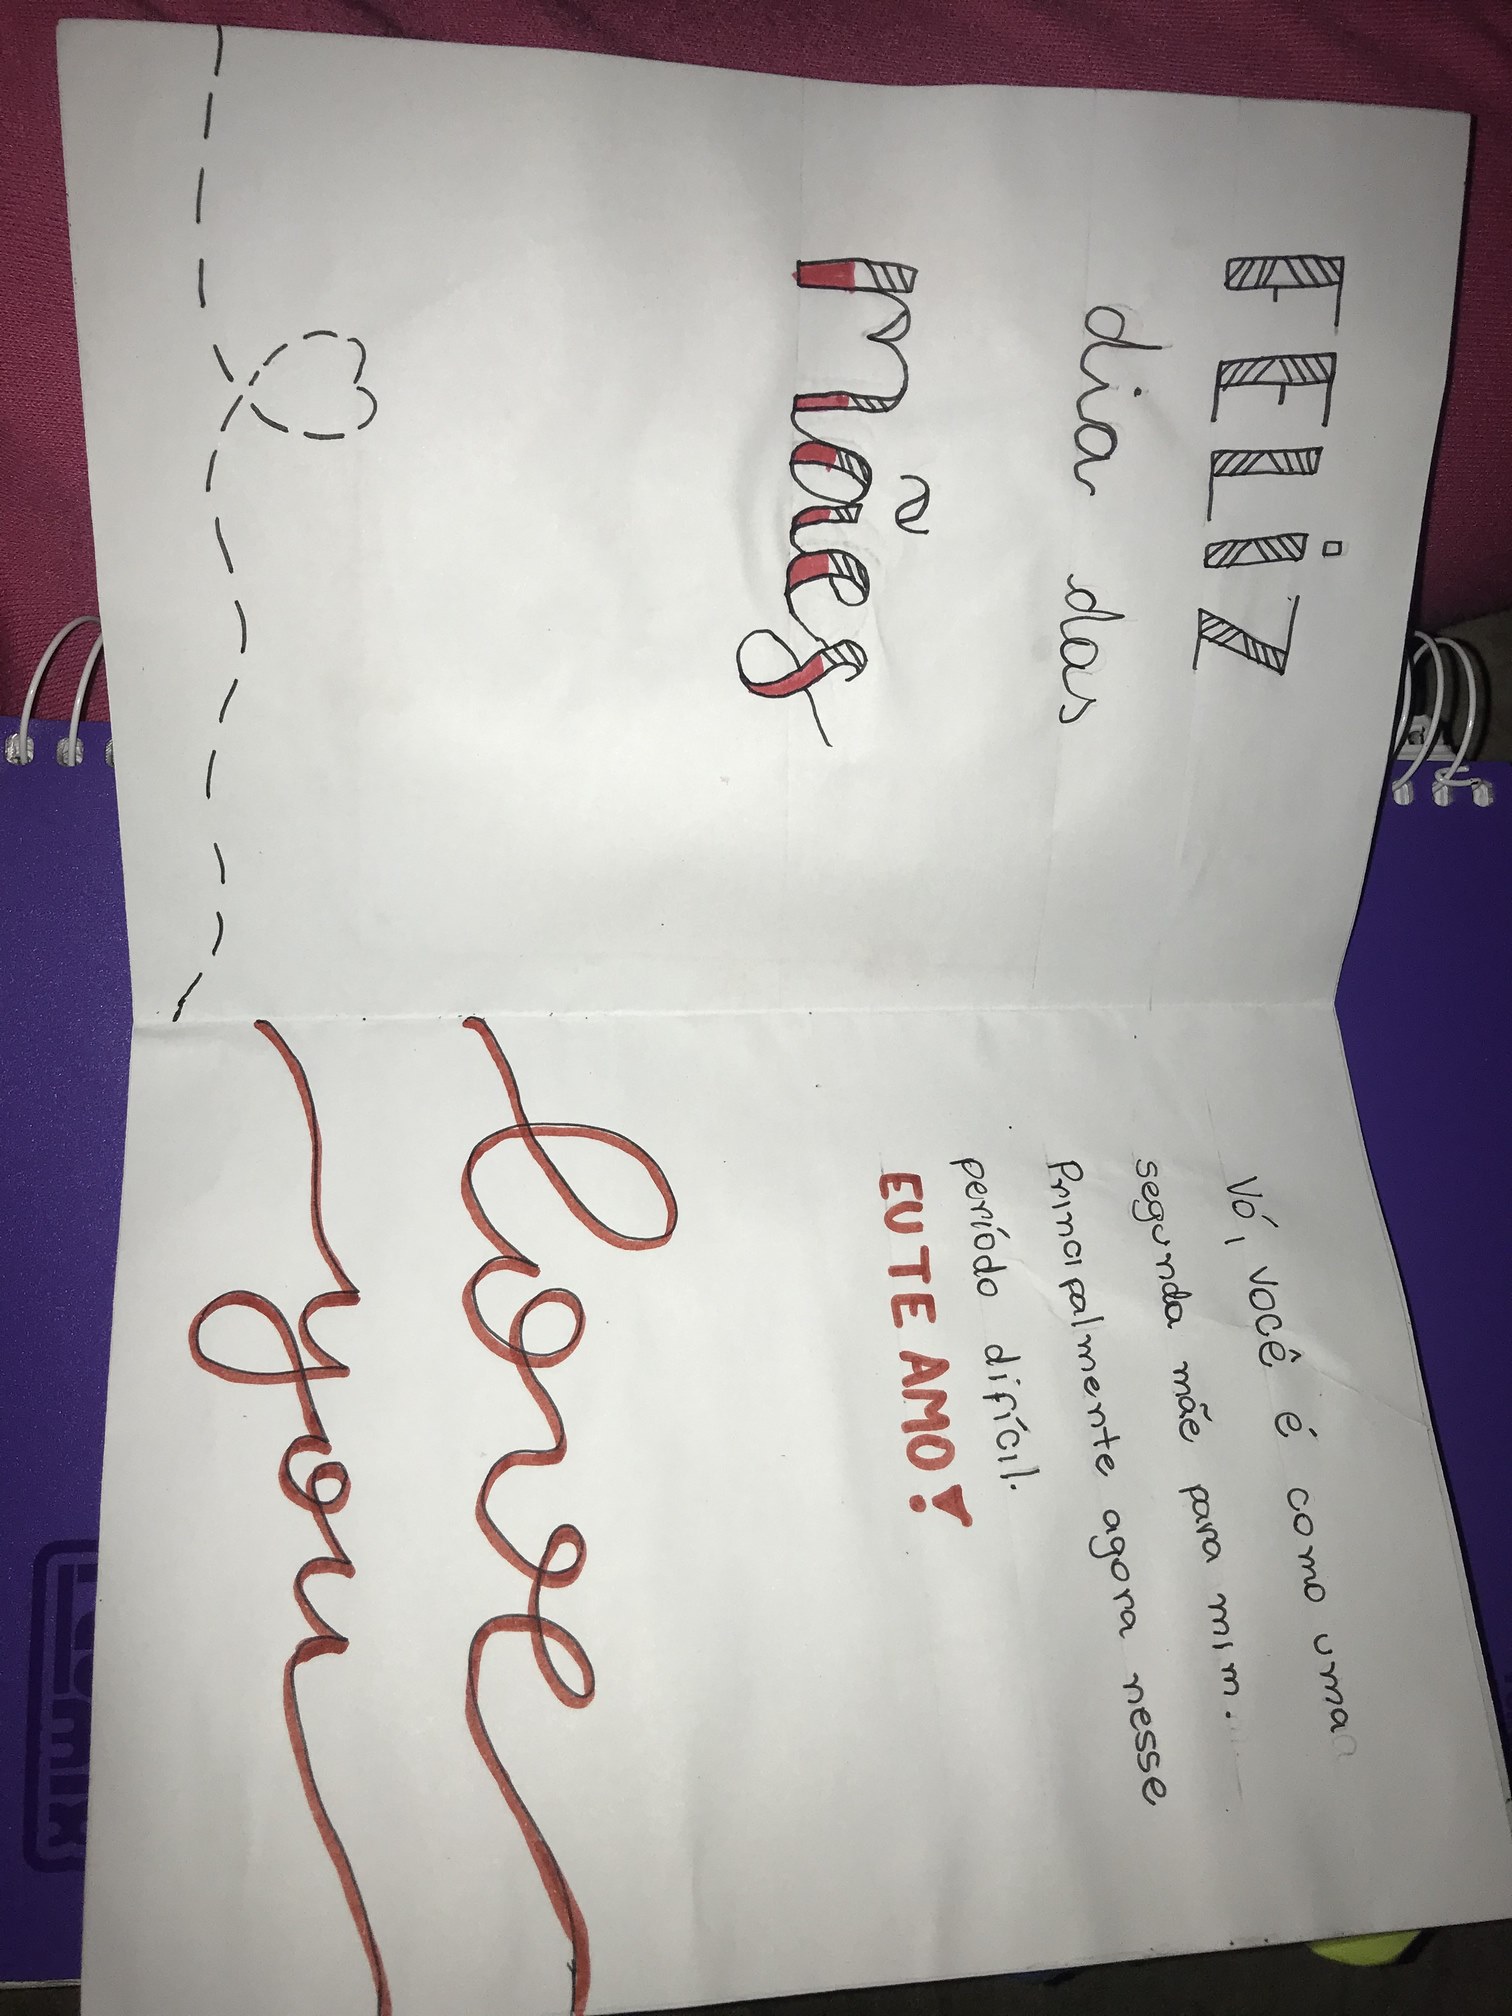 FELiZ
dia das
Mães
Vó, você é como uma
segunda mãe para mim.
Principalmente agora nesse
período difícil.
EU TE AMO!
Love
you